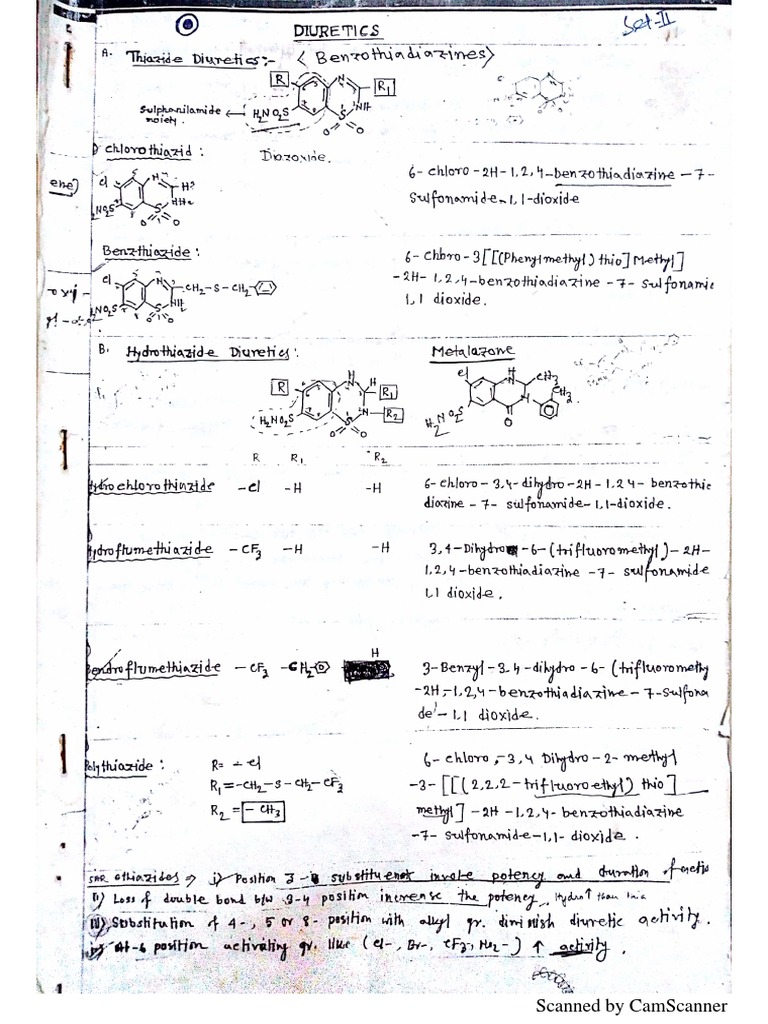 DIURETICS
Set-II
A. Thiazide Diuretics:- < Benzothiadiazines>
R
N
R1
NH
H2NO2S
S
O O
Sulphanilamide
moiety.
Diazoxide.
chlorothiazid :
cl
H2NO2S
6- chloro -2H-1,2,4-benzothiadiazine -7-
Sulfonamide-1,1-dioxide
ene)
Benzthiazide :
cl
CH2-S-CH2-
H2NO2S
6- Chloro-3[[(Phenylmethyl) thio] Methyl]
-2H- 1,2,4-benzothiadiazine -7- sulfonamid
1,1 dioxide.
B. Hydrothiazide Diuretics:
Metalazone
R
R1
R2
H2NO2S
cl
H
CH3
CH3
O
H2NO2S
R R1 R2
Hydrochlorothiazide -cl -H -H
6- chloro - 3,4- dihydro -2H-1,2,4- benzothic
diazine -7- sulfonamide-1,1-dioxide.
Hydroflumethiazide -CF3 -H -H
3,4-Dihydro -6-(trifluoromethyl)-2H-
1,2,4-benzothiadiazine -7- sulfonamide
1,1 dioxide.
Bendroflumethiazide -CF3 -CH2 H
3-Benzyl-3,4-dihydro -6- (trifluoromethy
-2H,-1,2,4-benzothiadiazine-7-Sulfona
de'-1,1 dioxide.
Polythiazide :
R= -cl
R1=-CH2-S-CH2-CF3
R2 = -CH3
6- chloro,-3,4 Dihydro-2- methyl
-3-[[(2,2,2-trifluoroethyl) thio]
methyl]-2H-1,2,4- benzothiadiazine
-7- sulfonamide-1,1- dioxide.
SAR of thiazides => i) Position 3- substituent involve potency and duration of actio
ii) Loss of double bond b/w 3-4 position increase the potency, Hydro↑ than thia
iii) Substitution of 4-, 5 or 8- position with alkyl gr. diminish diuretic activity.
iv) At-6 position activating gr. like (cl-, Br-, CF3-, NO2-) ↑ activity.
Scanned by CamScanner